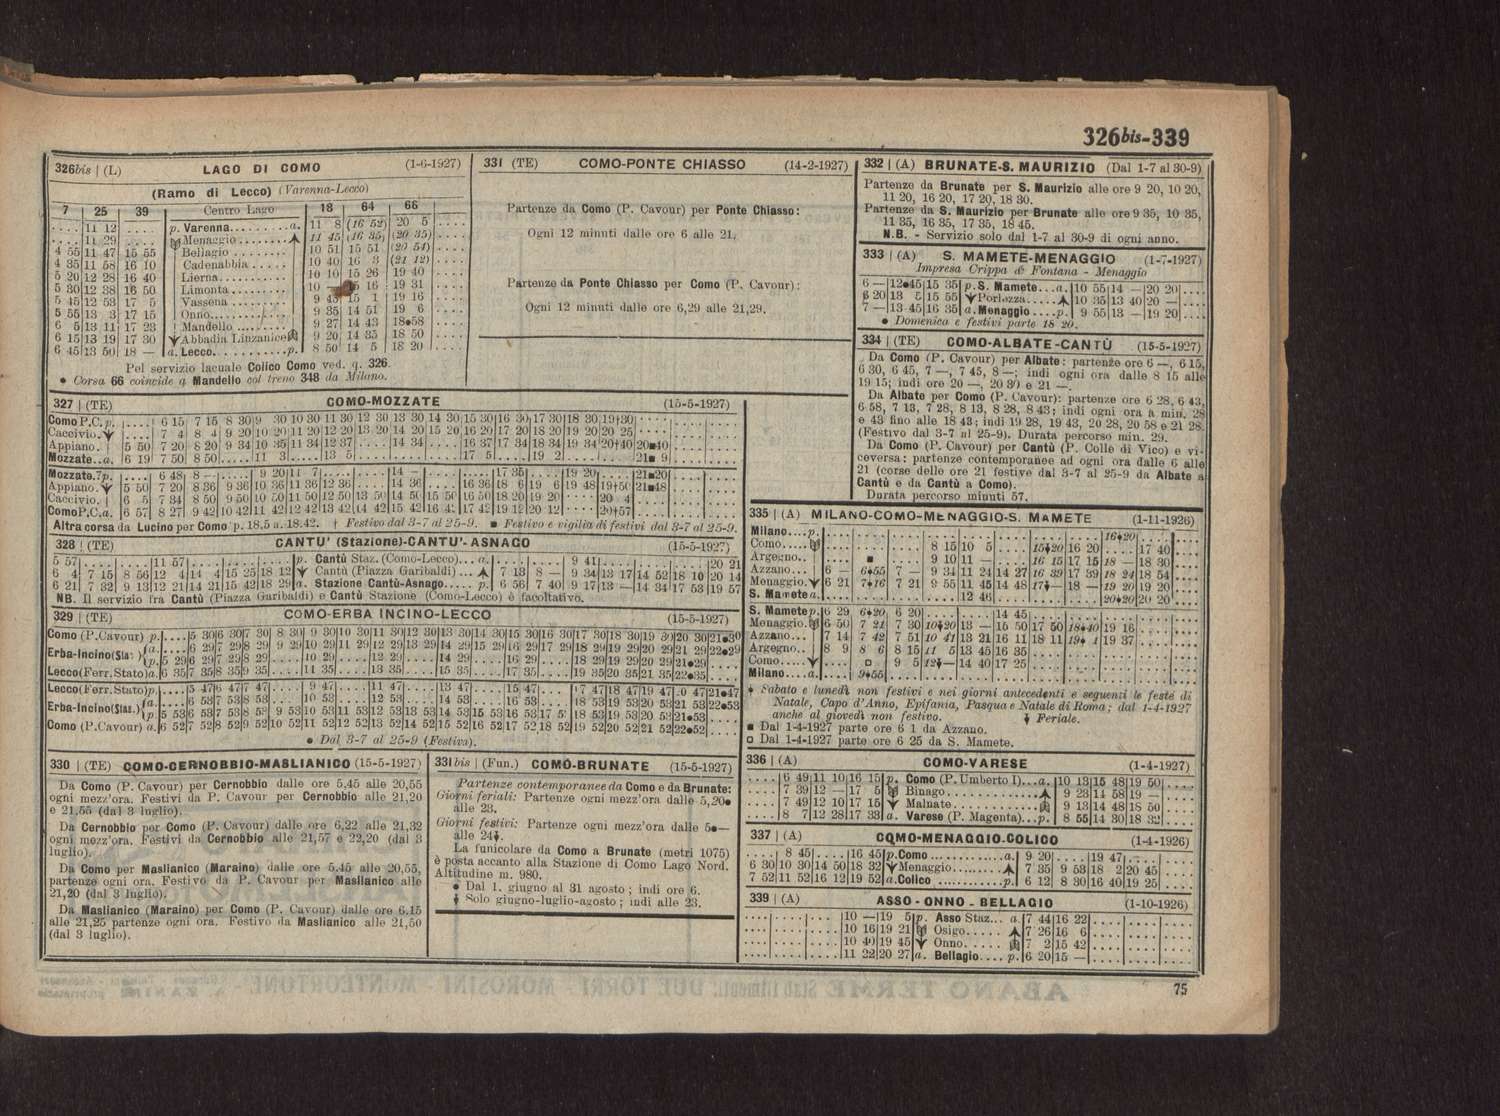 326bis-339
326bis | (L) LAGO DI COMO (1-6-1927)
(Ramo di Lecco) (Varenna-Lecco)
7 25 39 Centro Lago 18 64 66
.... 11 12 .... p. Varenna........a. 11 8 (16 52) 20 5 ....
.... 11 29 .... Menaggio 11 45 (16 35) (20 35) ....
4 55 11 47 15 55 Bellagio ........ 10 51 15 51 (20 54) ....
4 35 11 58 16 10 Cadenabbia ..... 10 40 16 3 (21 12) ....
5 20 12 28 16 40 Lierna........... 10 10 15 26 19 40 ....
5 30 12 38 16 50 Limonta......... 10 — 15 16 19 31 ....
5 45 12 53 17 5 Vassena ......... 9 45 15 1 19 16 ....
5 55 13 3 17 15 Onno............ 9 35 14 51 19 6 ....
6 5 13 11 17 23 Mandello ........ 9 27 14 43 18•58 ....
6 15 13 19 17 30 Abbadia Linzanice 9 20 14 35 18 50 ....
6 45 13 50 18 — a. Lecco..........p. 8 50 14 5 18 20 ....
Pel servizio lacuale Colico Como ved. q. 326.
• Corsa 66 coincide a Mandello col treno 348 da Milano.
331 (TE) COMO-PONTE CHIASSO (14-2-1927)
Partenze da Como (P. Cavour) per Ponte Chiasso:
Ogni 12 minuti dalle ore 6 alle 21.
Partenze da Ponte Chiasso per Como (P. Cavour):
Ogni 12 minuti dalle ore 6,29 alle 21,29.
332 | (A) BRUNATE-S. MAURIZIO (Dal 1-7 al 30-9)
Partenze da Brunate per S. Maurizio alle ore 9 20, 10 20,
11 20, 16 20, 17 20, 18 30.
Partenze da S. Maurizio per Brunate alle ore 9 35, 10 35,
11 35, 16 35, 17 35, 18 45.
N.B. - Servizio solo dal 1-7 al 30-9 di ogni anno.
333 | (A) S. MAMETE-MENAGGIO (1-7-1927)
Impresa Crippa & Fontana - Menaggio
6 — 12•45 15 35 p. S. Mamete...a. 10 55 14 — 20 20 ....
6 20 13 5 15 55 Porlezza..... 10 35 13 40 20 — ....
7 — 13 45 16 35 a. Menaggio....p. 9 55 13 — 19 20 ....
• Domenica e festivi parte 18 20.
334 | (TE) COMO-ALBATE-CANTÙ (15-5-1927)
Da Como (P. Cavour) per Albate: partenze ore 6 —, 6 15,
6 30, 6 45, 7 —, 7 45, 8 —; indi ogni ora dalle 8 15 alle
19 15; indi ore 20 —, 20 30 e 21 —.
Da Albate per Como (P. Cavour): partenze ore 6 28, 6 43,
6 58, 7 13, 7 28, 8 13, 8 28, 8 43; indi ogni ora a min. 28
e 43 fino alle 18 43; indi 19 28, 19 43, 20 28, 20 58 e 21 28.
(Festivo dal 3-7 al 25-9). Durata percorso min. 29.
Da Como (P. Cavour) per Cantù (P. Colle di Vico) e vi-
ceversa: partenze contemporanee ad ogni ora dalle 6 alle
21 (corse delle ore 21 festive dal 3-7 al 25-9 da Albate a
Cantù e da Cantù a Como).
Durata percorso minuti 57.
327 | (TE) COMO-MOZZATE (15-5-1927)
Como P.C. p. .... 6 15 7 15 8 30 9 30 10 30 11 30 12 30 13 30 14 30 15 30 16 30 17 30 18 30 19†30 ....
Caccivio. .... 7 4 8 4 9 20 10 20 11 20 12 20 13 20 14 20 15 20 16 20 17 20 18 20 19 20 20 25 ....
Appiano. 5 50 7 20 8 20 9 34 10 35 11 34 12 37 .... 14 34 .... 16 37 17 34 18 34 19 34 20†40 20■40
Mozzate..a. 6 19 7 50 8 50 .... 11 3 .... 13 5 .... 17 5 .... 19 2 .... 21■ 9
Mozzate. p. .... 6 48 8 — .... 9 20 11 7 .... 14 — .... 17 35 .... 19 20 .... 21■20
Appiano. 5 50 7 20 8 36 9 36 10 36 11 36 12 36 .... 14 36 .... 16 36 18 6 19 6 19 48 19†50 21■48
Caccivio. 6 5 7 34 8 50 9 50 10 50 11 50 12 50 13 50 14 50 15 50 16 50 18 20 19 20 .... 20 4 ....
Como P.C. a. 6 57 8 27 9 42 10 42 11 42 12 42 13 42 14 42 15 42 16 42 17 42 19 12 20 12 .... 20†57 ....
Altra corsa da Lucino per Como p. 18.5 a. 18.42. † Festivo dal 3-7 al 25-9. ■ Festivo e vigilia di festivi dal 3-7 al 25-9.
328 | (TE) CANTU' (Stazione)-CANTU'- ASNAGO (15-5-1927)
5 57 .... 11 57 .... p. Cantù Staz. (Como-Lecco)... a. .... 9 41 .... 20 21
6 4 7 15 8 56 12 4 14 4 15 25 18 12 Cantù (Piazza Garibaldi) ... 7 13 8 — 9 34 13 17 14 52 18 10 20 14
6 21 7 32 9 13 12 21 14 21 15 42 18 29 a. Stazione Cantù-Asnago..... p. 6 56 7 40 9 17 13 — 14 34 17 53 19 57
NB. Il servizio fra Cantù (Piazza Garibaldi) e Cantù Stazione (Como-Lecco) è facoltativo.
329 | (TE) COMO-ERBA INCINO-LECCO (15-5-1927)
Como (P.Cavour) p. .... 5 30 6 30 7 30 8 30 9 30 10 30 11 30 12 30 13 30 14 30 15 30 16 30 17 30 18 30 19 30 20 30 21•30
Erba-Incino(Staz.) a. .... 6 29 7 29 8 29 9 29 10 29 11 29 12 29 13 29 14 29 15 29 16 29 17 29 18 29 19 29 20 29 21 29 22•29
p. 5 29 6 29 7 29 8 29 .... 10 29 .... 12 29 .... 14 29 .... 16 29 .... 18 29 19 29 20 29 21•29 ....
Lecco (Ferr. Stato) a. 6 35 7 35 8 35 9 35 .... 11 35 .... 13 35 .... 15 35 .... 17 35 .... 19 35 20 35 21 35 22•35 ....
Lecco (Ferr. Stato) p. .... 5 47 6 47 7 47 .... 9 47 .... 11 47 .... 13 47 .... 15 47 .... 17 47 18 47 19 47 20 47 21•47
Erba-Incino(Staz.) a. .... 6 53 7 53 8 53 .... 10 53 .... 12 53 .... 14 53 .... 16 53 .... 18 53 19 53 20 53 21 53 22•53
p. 5 53 6 53 7 53 8 53 9 53 10 53 11 53 12 53 13 53 14 53 15 53 16 53 17 53 18 53 19 53 20 53 21•53 ....
Como (P.Cavour) a. 6 52 7 52 8 52 9 52 10 52 11 52 12 52 13 52 14 52 15 52 16 52 17 52 18 52 19 52 20 52 21 52 22•52 ....
• Dal 3-7 al 25-9 (Festiva).
335 | (A) MILANO-COMO-MENAGGIO-S. MAMETE (1-11-1926)
Milano....p. .... 16•20 ....
Como..... .... 8 15 10 5 .... 15•20 16 20 .... 17 40
Argegno.. .... ■ .... 9 10 11 — .... 16 15 17 15 18 — 18 30
Azzano... 6 — 6•55 7 — 9 34 11 24 14 27 16 39 17 39 18 24 18 54
Menaggio. 6 21 7•16 7 21 9 55 11 45 14 48 17 — 18 — 19 20 19 20
S. Mamete a. .... 12 46 .... 20•20 20 20
S. Mamete p. 6 29 6•20 6 20 .... 14 45 ....
Menaggio. 6 50 7 21 7 30 10•20 13 — 15 50 17 50 18•40 19 16
Azzano... 7 14 7 42 7 51 10 41 13 21 16 11 18 11 19 1 19 37
Argegno.. 8 9 8 6 8 15 11 5 13 45 16 35 ....
Como..... □ 9 5 12 — 14 40 17 25 ....
Milano....a. .... 9•55 ....
Sabato e lunedì non festivi e nei giorni antecedenti e seguenti le feste di
Natale, Capo d'Anno, Epifania, Pasqua e Natale di Roma; dal 1-4-1927
anche al giovedì non festivo. Feriale.
■ Dal 1-4-1927 parte ore 6 1 da Azzano.
□ Dal 1-4-1927 parte ore 6 25 da S. Mamete.
330 | (TE) COMO-CERNOBBIO-MASLIANICO (15-5-1927)
Da Como (P. Cavour) per Cernobbio dalle ore 5,45 alle 20,55
ogni mezz'ora. Festivi da P. Cavour per Cernobbio alle 21,20
e 21,55 (dal 3 luglio).
Da Cernobbio per Como (P. Cavour) dalle ore 6,22 alle 21,32
ogni mezz'ora. Festivi da Cernobbio alle 21,57 e 22,20 (dal 3
luglio).
Da Como per Maslianico (Maraino) dalle ore 5.45 alle 20,55,
partenze ogni ora. Festivo da P. Cavour per Maslianico alle
21,20 (dal 3 luglio).
Da Maslianico (Maraino) per Como (P. Cavour) dalle ore 6,15
alle 21,25 partenze ogni ora. Festivo da Maslianico alle 21,50
(dal 3 luglio).
331bis | (Fun.) COMO-BRUNATE (15-5-1927)
Partenze contemporanee da Como e da Brunate:
Giorni feriali: Partenze ogni mezz'ora dalle 5,20•
alle 23.
Giorni festivi: Partenze ogni mezz'ora dalle 5•—
alle 24.
La funicolare da Como a Brunate (metri 1075)
è posta accanto alla Stazione di Como Lago Nord.
Altitudine m. 980.
• Dal 1. giugno al 31 agosto; indi ore 6.
Solo giugno-luglio-agosto; indi alle 23.
336 | (A) COMO-VARESE (1-4-1927)
.... 6 49 11 10 16 15 p. Como (P. Umberto I)...a. 10 13 15 48 19 50 ....
.... 7 39 12 — 17 5 Binago............ 9 23 14 58 19 — ....
.... 7 49 12 10 17 15 Malnate........... 9 13 14 48 18 50 ....
.... 8 7 12 28 17 33 a. Varese (P. Magenta)...p. 8 55 14 30 18 32 ....
337 | (A) COMO-MENAGGIO-COLICO (1-4-1926)
.... 8 45 .... 16 45 p. Como ............a. 9 20 .... 19 47 ....
6 30 10 30 14 50 18 32 Menaggio........ 7 35 9 53 18 2 20 45
7 52 11 52 16 12 19 52 a. Colico ...........p. 6 12 8 30 16 40 19 25
339 | (A) ASSO - ONNO - BELLAGIO (1-10-1926)
.... 10 — 19 5 p. Asso Staz... a. 7 44 16 22 ....
.... 10 16 19 21 Osigo..... 7 26 16 6 ....
.... 10 40 19 45 Onno..... 7 2 15 42 ....
.... 11 22 20 27 a. Bellagio.... p. 6 20 15 — ....
75